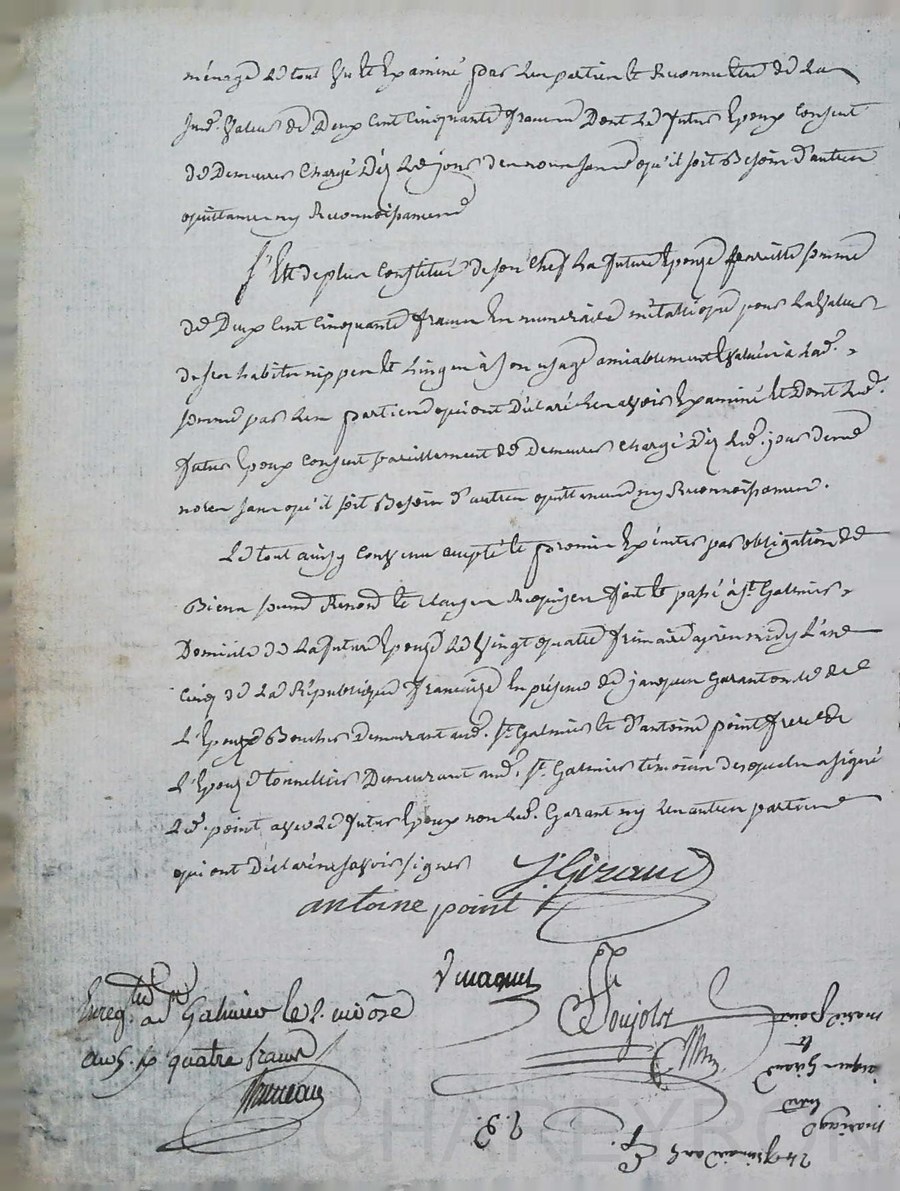 ménage le tout vu et Examiné par les parties et Reconnu être de la
susd. valeur de Deux Cent Cinquante francs Dont le futur Epoux Consent
de Demeurer Chargé Dès le jour des noces sans qu'il soit Besoin d'autres
quittances ny Reconnoissances
S'Est de plus Constitué de son Chef La future Epouse pareille somme
de Deux Cent Cinquante francs En numeraire métallique pour la valeur
de ses habits nippes et Linges à son usage amiablement Evalués à lad.
somme par les parties qui ont Déclaré les avoir Examiné et Dont led.
futur Epoux Consent pareillement de Demeurer Chargé Dès led. jour des
noces sans qu'il soit Besoin d'autres quittances ny Reconnoissances.
Le tout ainsy Convenu accepté et promis Exécuter par obligation de
Biens soumis Renond. et Clauses Requises fait et passé à St. Galmier
Domicile de La future Epouse Le Vingt quatre frimaire après midy L'an
Cinq de La République française En présence de jacques Garant de
L'Epouse Boucher Demeurant aud. St. Galmier et d'antoine point frere de
L'Epouse tonnellier Demeurant aud. St. Galmier témoins desquels a signé
Led. point avec Le futur Epoux non Led. Garant ny Les autres parties
qui ont Déclaré ne savoir signer
J. Giraud
antoine point
Enreg. à St Galmier le 2. nivôse
an 5. R quatre francs
marie point
et
jaques Giraud
mariage
24 frimaire an 5
CHAREYRON